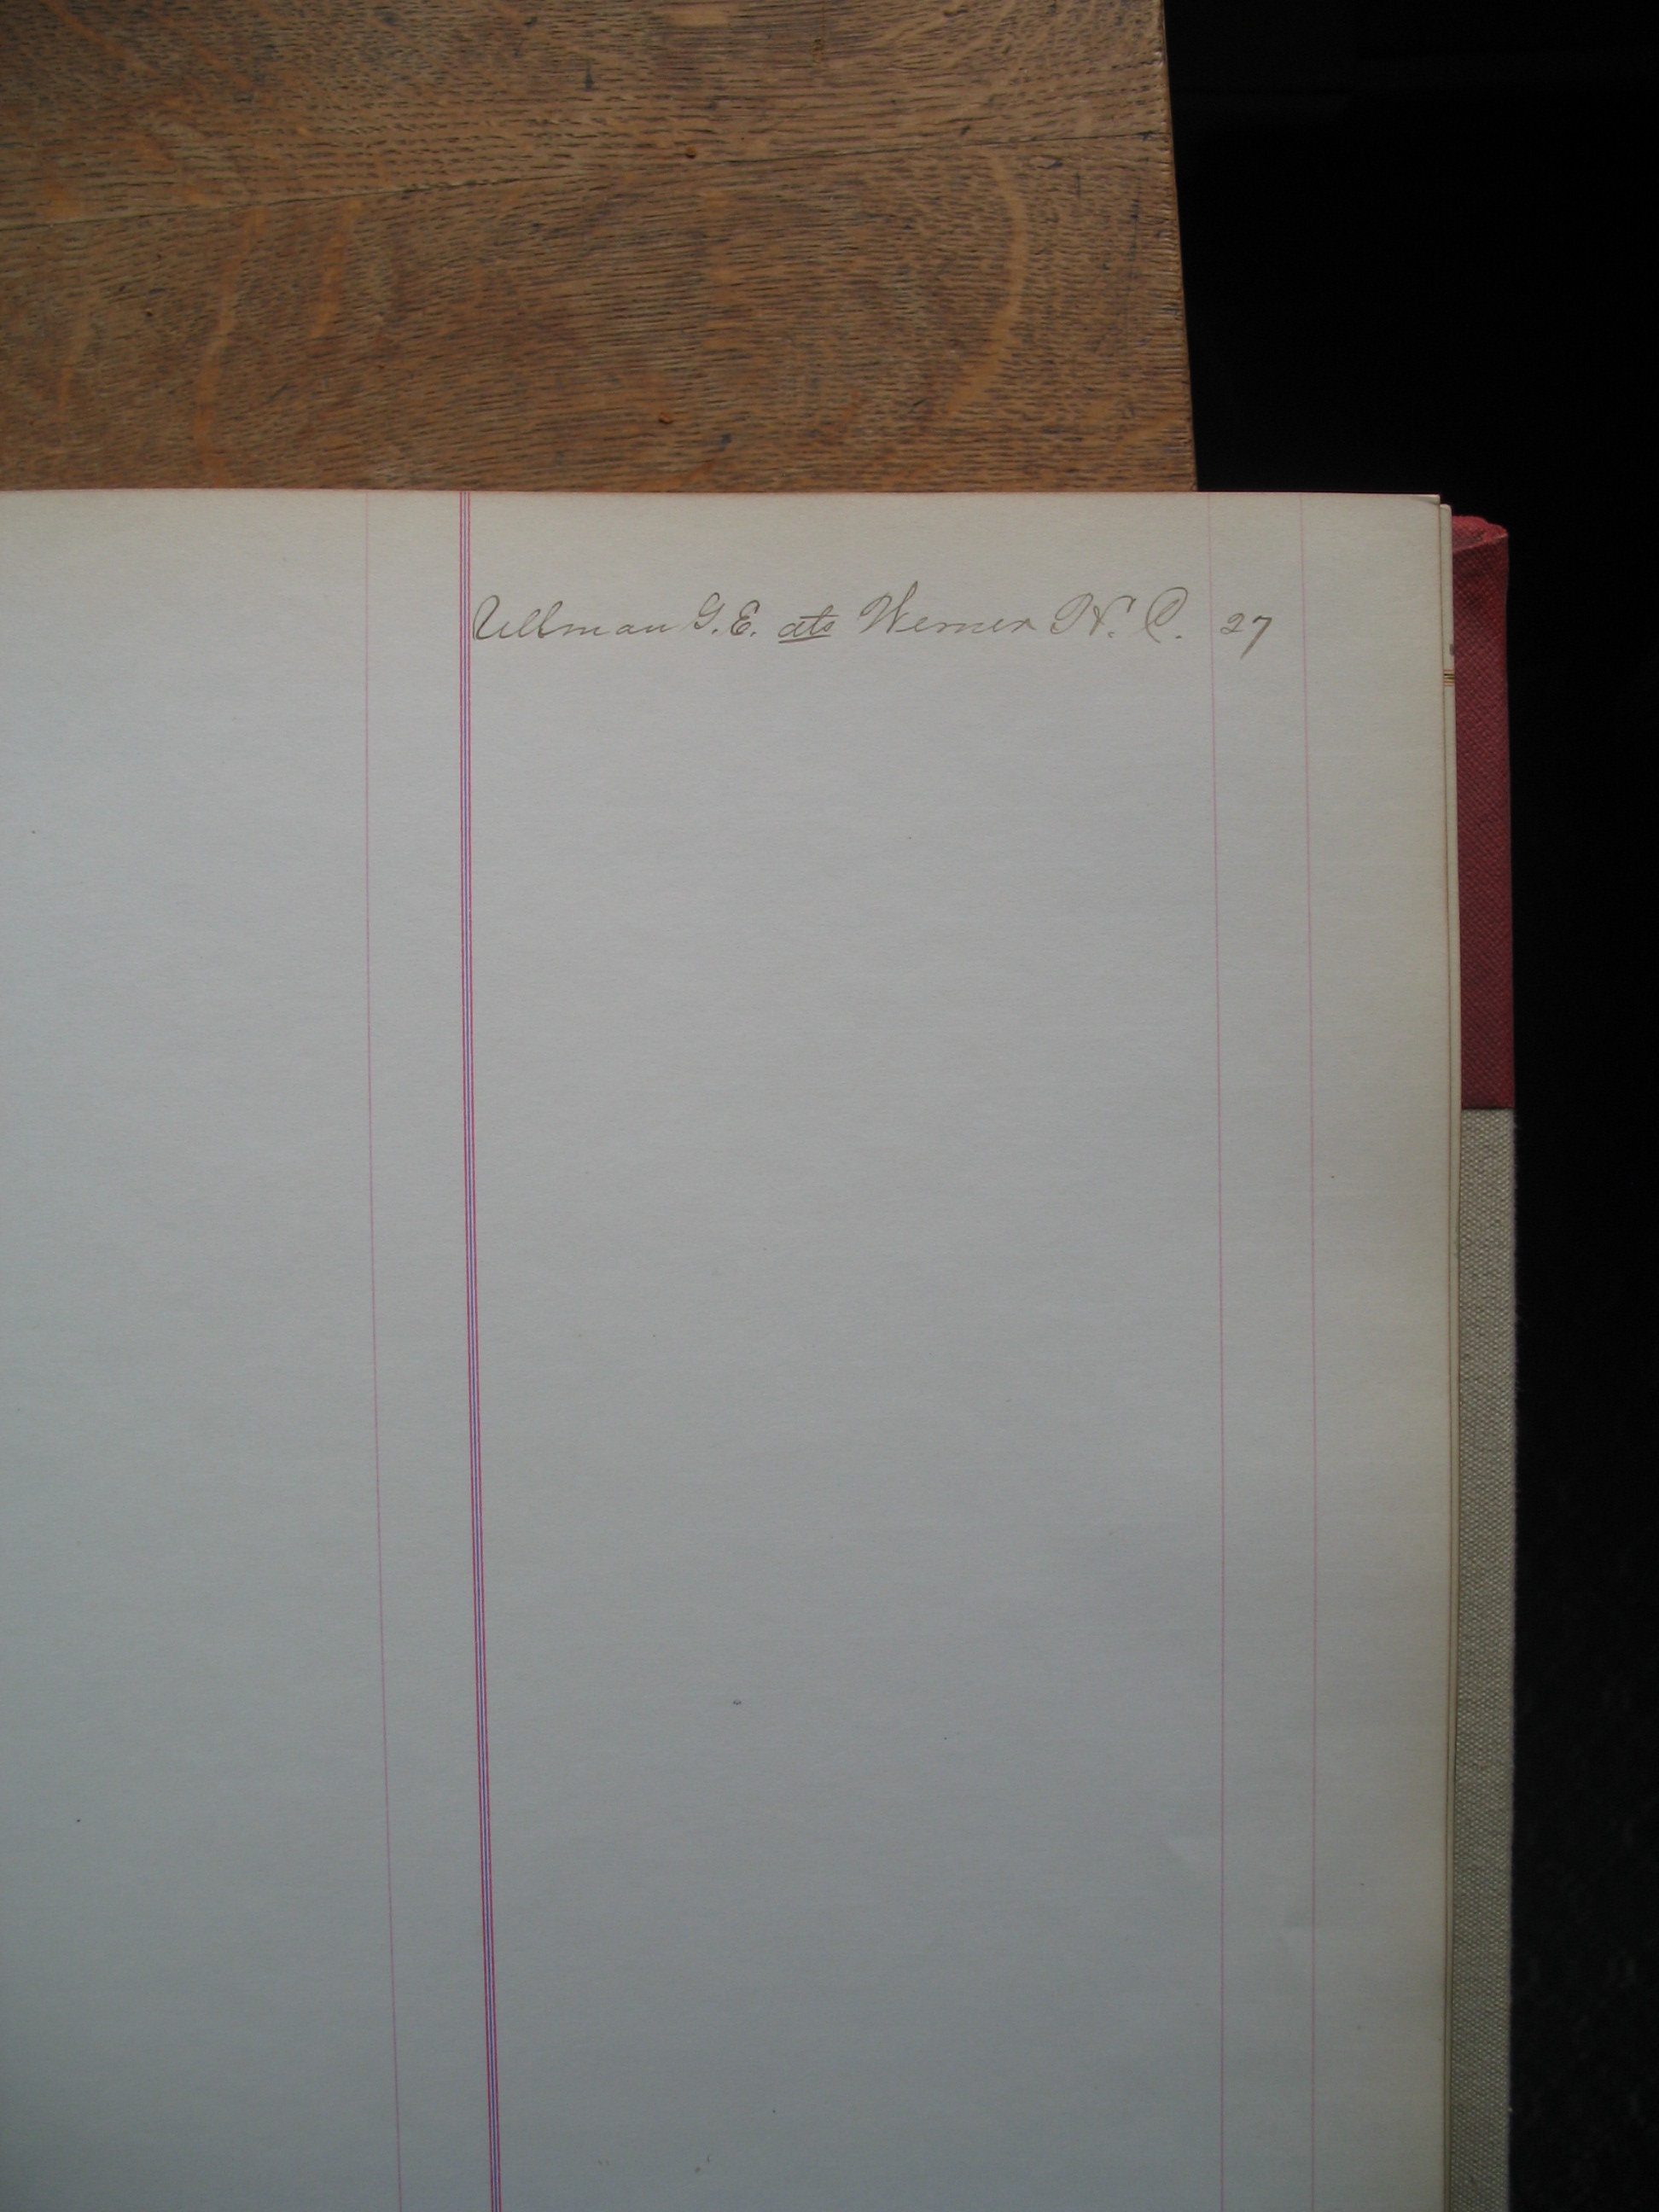 Ullman G.E. ats Werner H. C. 27